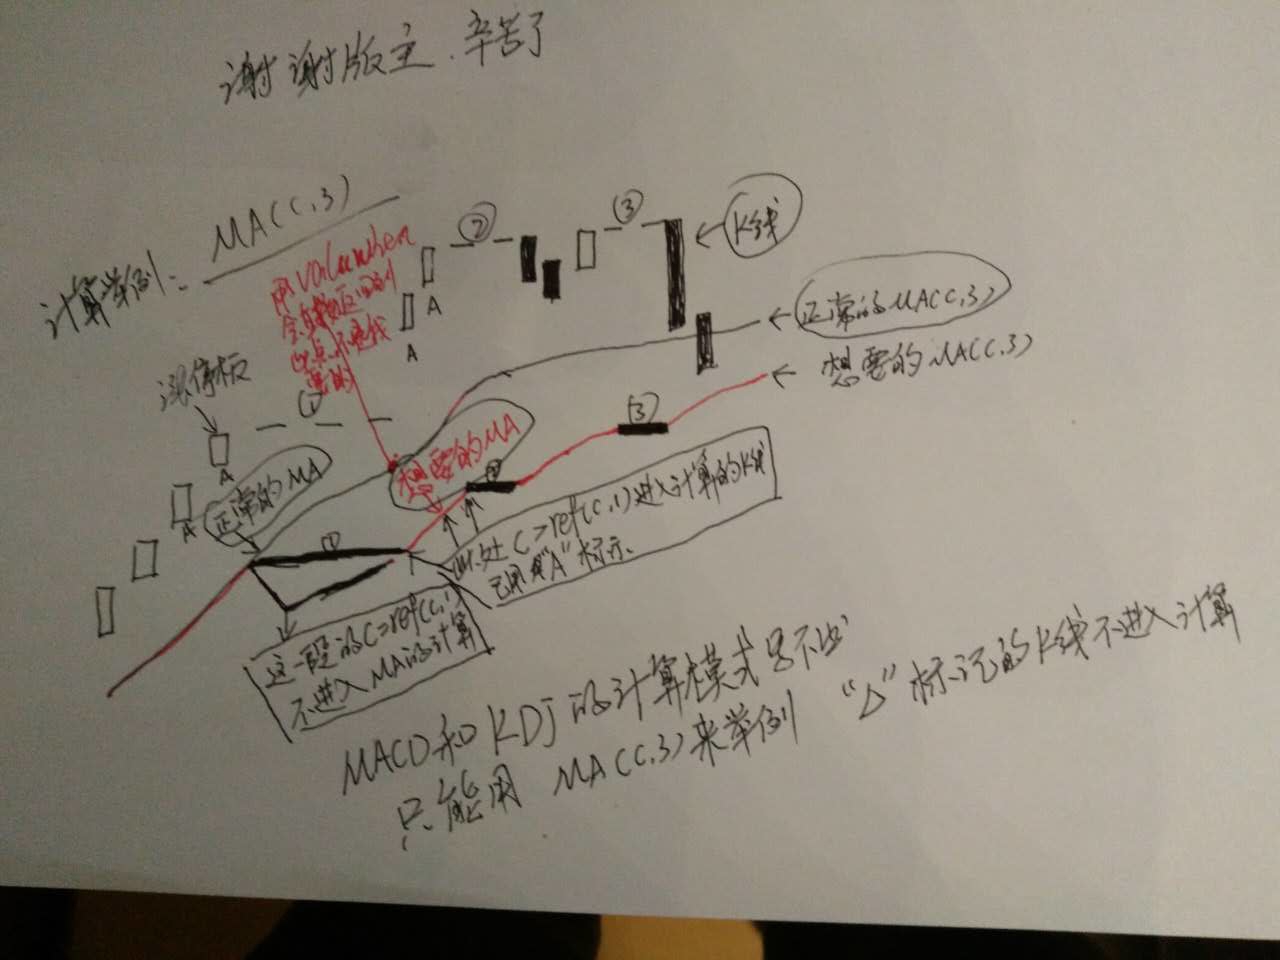 谢谢版主.辛苦了
计算举例: MA(C,3)
用valuewhen
点不是我
要的
② ③
K线
A
A
涨停板
①
A
A
正常的MA(C,3)
想要的MA(C,3)
正常的MA
想要的MA
②
③
①
此处C>ref(C,1)进入计算的K线
已用"A"标示.
这一段的C=ref(C,1)
不进入MA的计算
MACD和KDJ的计算模式
只能用 MA(C,3)来举例 标记的K线不进入计算